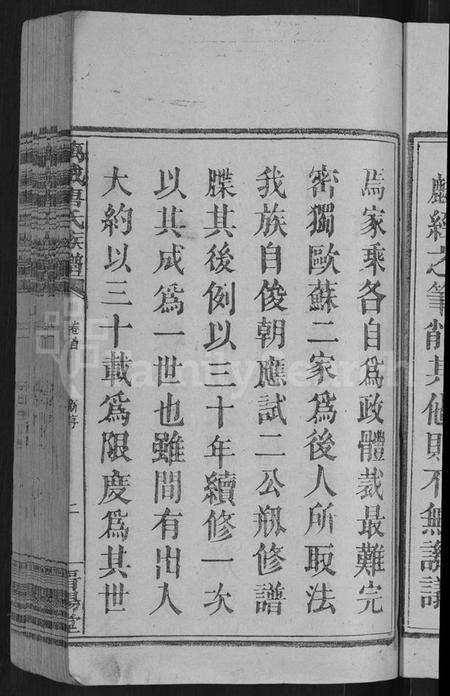 麟經之筆削其他則不無
焉家乘各自為政體裁最難完
密獨歐蘇二家爲後人所取法
我族自俊朝應試二公刱修譜
牒其後例以三十年續修一次
以其成爲一世也雖間有出入
大約以三十載爲限度爲其世
氏族譜
卷首
新序
二
晋陽堂